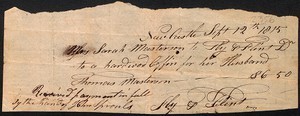 Newcastle Sept 12th 1815
Mrs Sarah Masterson to Fly & Flint Dr
to a hardwood Coffin for her Husband
Thomas Masterson 8 6 50
Received payment in full
by the hand of
Fly & Flint